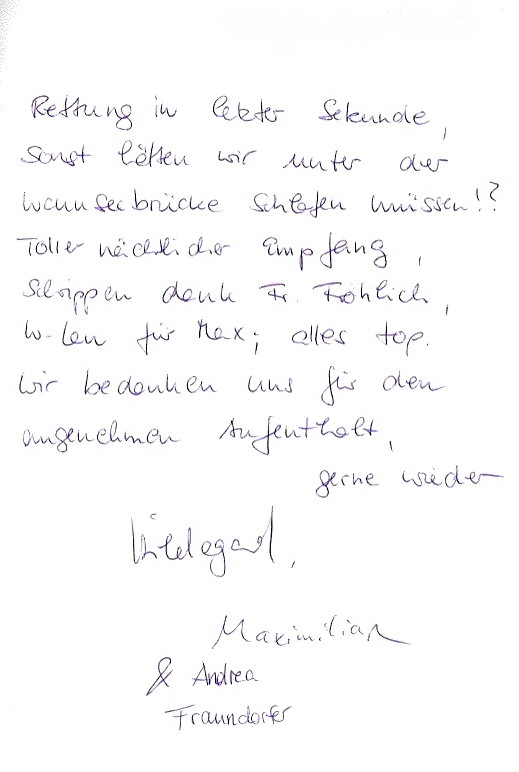 Rettung in letzter Sekunde,
sonst hätten wir unter der
Wannseebrücke schlafen müssen!?
Toller nächtlicher Empfang,
Schrippen dank Fr. Fröhlich,
W-Lan für Max; alles top.
Wir bedanken uns für den
angenehmen Aufenthalt,
gerne wieder
Hildegard,
Maximilian
& Andrea
Fraundorfer